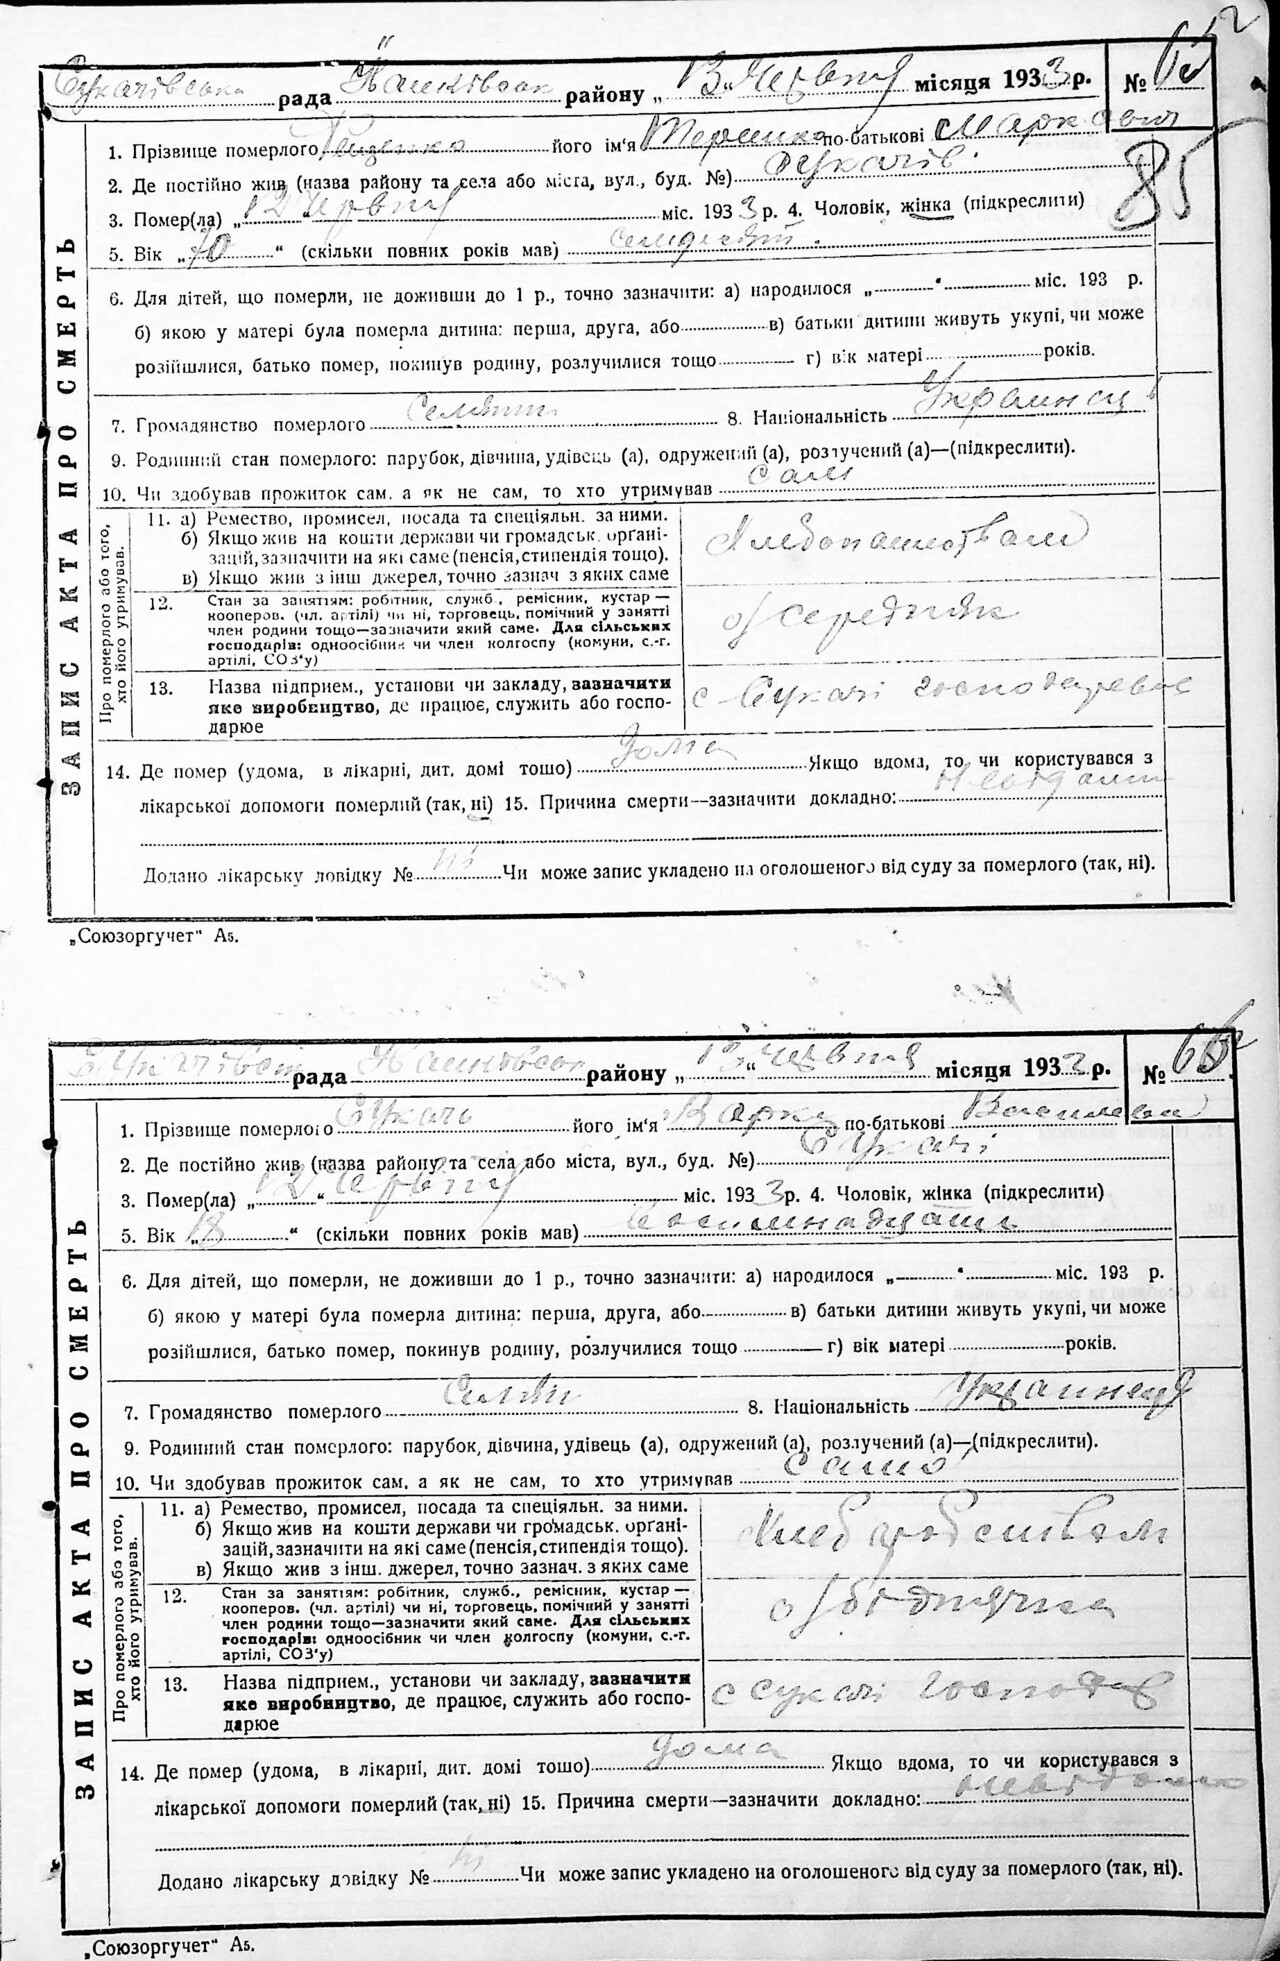 рада району „ 13 червня місяця 1933 р. № 65
1. Прізвище померлого його ім'я по-батькові Маркович
2. Де постійно жив (назва району та села або міста, вул., буд. №) Сукачів
85
3. Помер(ла) „ 12 червня міс. 1933 р. 4. Чоловік, жінка (підкреслити)
5. Вік „ 70 “ (скільки повних років мав) семдесят.
6. Для дітей, що померли, не доживши до 1 р., точно зазначити: а) народилося „ “ міс. 193 р.
б) якою у матері була померла дитина: перша, друга, або в) батьки дитини живуть укупі, чи може
розійшлися, батько помер, покинув родину, розлучилися тощо г) вік матері років.
7. Громадянство померлого 8. Національність Украинец
9. Родинний стан померлого: парубок, дівчина, удівець (а), одружений (а), розлучений (а)—(підкреслити).
10. Чи здобував прожиток сам, а як не сам, то хто утримував сам
ЗАПИС АКТА ПРО СМЕРТЬ
Про померлого або того, хто його утримував.
11. а) Ремество, промисел, посада та спеціяльн. за ними.
б) Якщо жив на кошти держави чи громадськ. органі-
зацій, зазначити на які саме (пенсія, стипендія тощо).
в) Якщо жив з інш джерел, точно зазнач з яких саме
Хлебопашеством
12. Стан за заняттям: робітник, служб., ремісник, кустар—
кооперов. (чл. артілі) чи ні, торговець, помічний у занятті
член родини тощо—зазначити який саме. Для сільських
господарів: одноосібник чи член колгоспу (комуни, с.-г.
артілі, СОЗ'у)
о/ середняк
13. Назва підприєм., установи чи закладу, зазначити
яке виробництво, де працює, служить або госпо-
дарюе
с Сукачі
14. Де помер (удома, в лікарні, дит. домі тощо) дома Якщо вдома, то чи користувався з
лікарської допомоги померлий (так, ні) 15. Причина смерти—зазначити докладно:
Додано лікарську довідку № ні Чи може запис укладено на оголошеного від суду за померлого (так, ні).
„Союзоргучет“ А5.
рада району „ 13 “ червня місяця 1933 р. № 66
1. Прізвище померлого Сукач його ім'я Варка по-батькові
2. Де постійно жив (назва району та села або міста, вул., буд. №) Сукачі
3. Помер(ла) „ 12 “ червня міс. 1933 р. 4. Чоловік, жінка (підкреслити)
5. Вік „ 18 “ (скільки повних років мав)
6. Для дітей, що померли, не доживши до 1 р., точно зазначити: а) народилося „ “ міс. 193 р.
б) якою у матері була померла дитина: перша, друга, або в) батьки дитини живуть укупі, чи може
розійшлися, батько помер, покинув родину, розлучилися тощо г) вік матері років.
7. Громадянство померлого 8. Національність
9. Родинний стан померлого: парубок, дівчина, удівець (а), одружений (а), розлучений (а)—(підкреслити).
10. Чи здобував прожиток сам, а як не сам, то хто утримував
ЗАПИС АКТА ПРО СМЕРТЬ
Про померлого або того, хто його утримував.
11. а) Ремество, промисел, посада та спеціяльн. за ними.
б) Якщо жив на кошти держави чи громадськ. органі-
зацій, зазначити на які саме (пенсія, стипендія тощо).
в) Якщо жив з інш. джерел, точно зазнач. з яких саме
12. Стан за заняттям: робітник, служб., ремісник, кустар—
кооперов. (чл. артілі) чи ні, торговець, помічний у занятті
член родини тощо—зазначити який саме. Для сільських
господарів: одноосібник чи член колгоспу (комуни, с.-г.
артілі, СОЗ'у)
о/ біднячка
13. Назва підприєм., установи чи закладу, зазначити
яке виробництво, де працює, служить або госпо-
дарюе
с Сукачі
14. Де помер (удома, в лікарні, дит. домі тощо) дома Якщо вдома, то чи користувався з
лікарської допомоги померлий (так, ні) 15. Причина смерти—зазначити докладно: невідомо
Додано лікарську довідку № ні Чи може запис укладено на оголошеного від суду за померлого (так, ні).
„Союзоргучет“ А5.